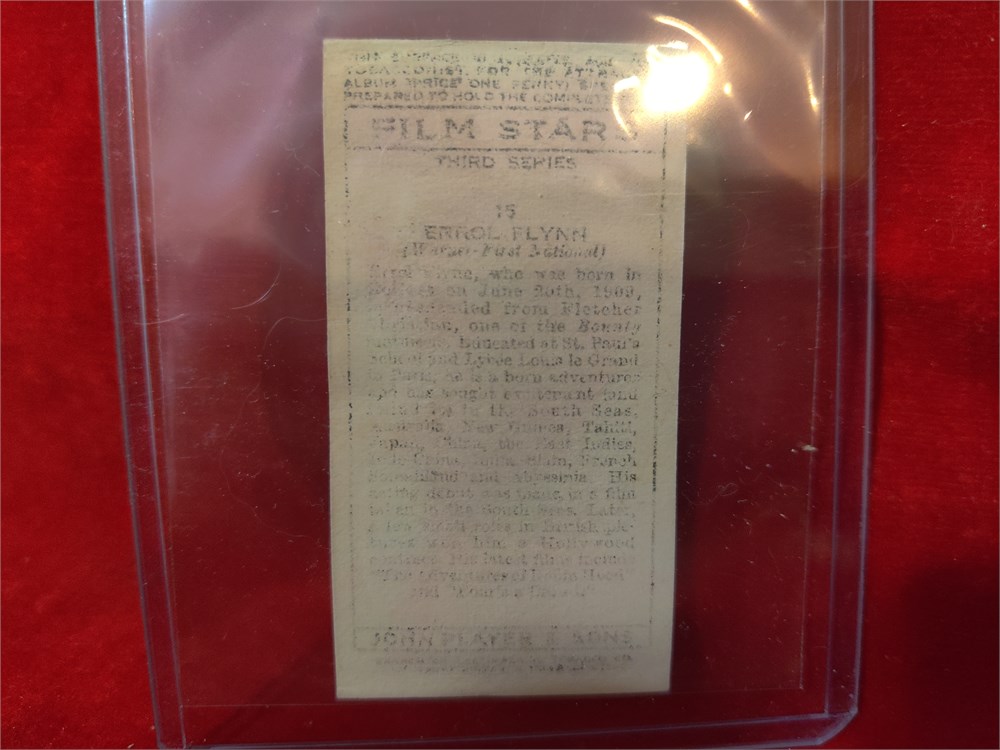 TOBACCONIST, FOR THE
ALBUM (PRICE ONE PENNY)
PREPARED TO HOLD THE COMPLETE
FILM STARS
THIRD SERIES
15
ERROL FLYNN
(Warner-First National)
who was born in
on June 20th, 1909,
from Fletcher
one of the Bounty
Educated at St. Paul's
School and Lycée Louis le Grand
in Paris, he is a born adventurer
and has sought excitement (and
in the South Seas,
New Guinea, Tahiti,
Japan, China, the East Indies,
Siam, French
Somaliland and Abyssinia. His
acting debut was made in a film
taken in the South Seas. Later,
a few small roles in British pic-
tures won him a Hollywood
contract. His latest films include
"The Adventures of Robin Hood"
and
JOHN PLAYER & SONS